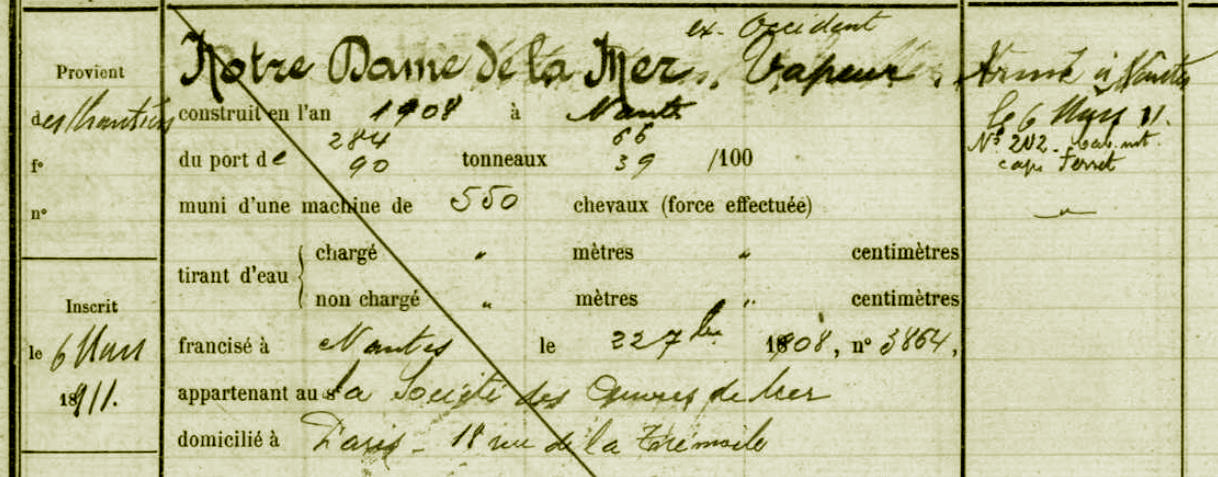 ex- Occident
Notre Dame de la Mer, Vapeur.
construit en l'an 1908 à Nantes
284 66
du port de 90 tonneaux 39 /100
muni d'une machine de 550 chevaux (force effectuée)
tirant d'eau { chargé " mètres " centimètres
non chargé " mètres " centimètres
francisé à Nantes le 22 7bre 1908, n° 3864,
appartenant au La Société des Œuvres de Mer
domicilié à Paris - 18 rue de la Trémoile
Provient
des Chantiers
f°
n°
Inscrit
le 6 Mars
1911.
Armé à Nantes
le 6 Mars 11.
N° 212 -
cap. Ferret